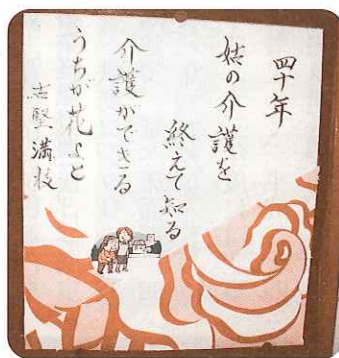 四十年
姑の介護を
終えて知る
介護ができる
うちが花よと
志堅満枝